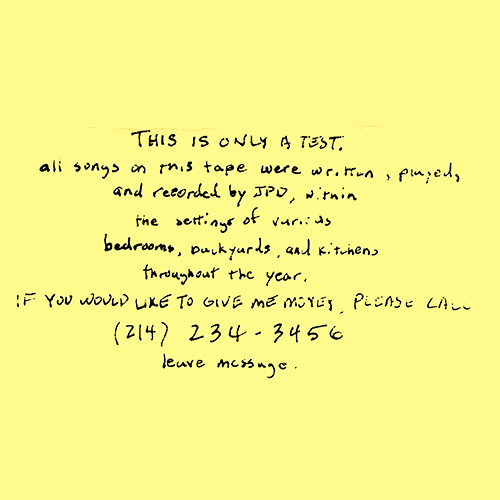 THIS IS ONLY A TEST.
all songs on this tape were written, played,
and recorded by JPD, within
the settings of various
bedrooms, backyards, and kitchens
throughout the year.
IF YOU WOULD LIKE TO GIVE ME MONEY, PLEASE CALL
(214) 234-3456
leave message.